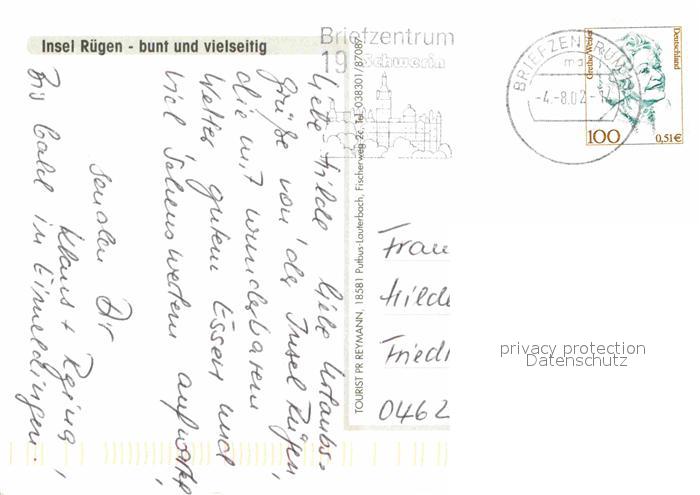 Insel Rügen - bunt und vielseitig
Liebe Hilde, liebe Urlaubs-
grüße von der Insel Rügen,
die mit wunderbarem
Wetter, gutem Essen und
viel Sehenswertem aufwartet,
senden Dir
Klaus + Regina,
Bis bald in Eimeldingen.
TOURIST PR REYMANN, 18581 Putbus-Lauterbach, Fischerweg 2c, Tel. 038301/87087
Briefzentrum
19 Schwerin
BRIEFZENTRUM
-4.-8.02
Grethe Weiser
Deutschland
100
0,51€
Frau
Hilde
Fried
0462
privacy protection
Datenschutz